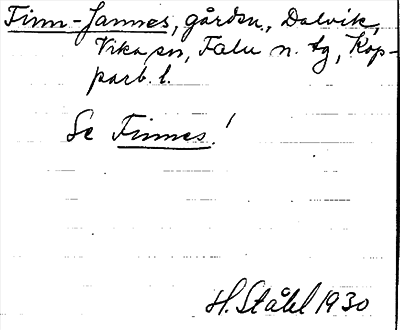 Finn-Jannes, gårdsn., Dalvik,
Vika sn, Falu n. tg, Kop-
parb. l.
Se Finnes!
H. Ståhl 1930